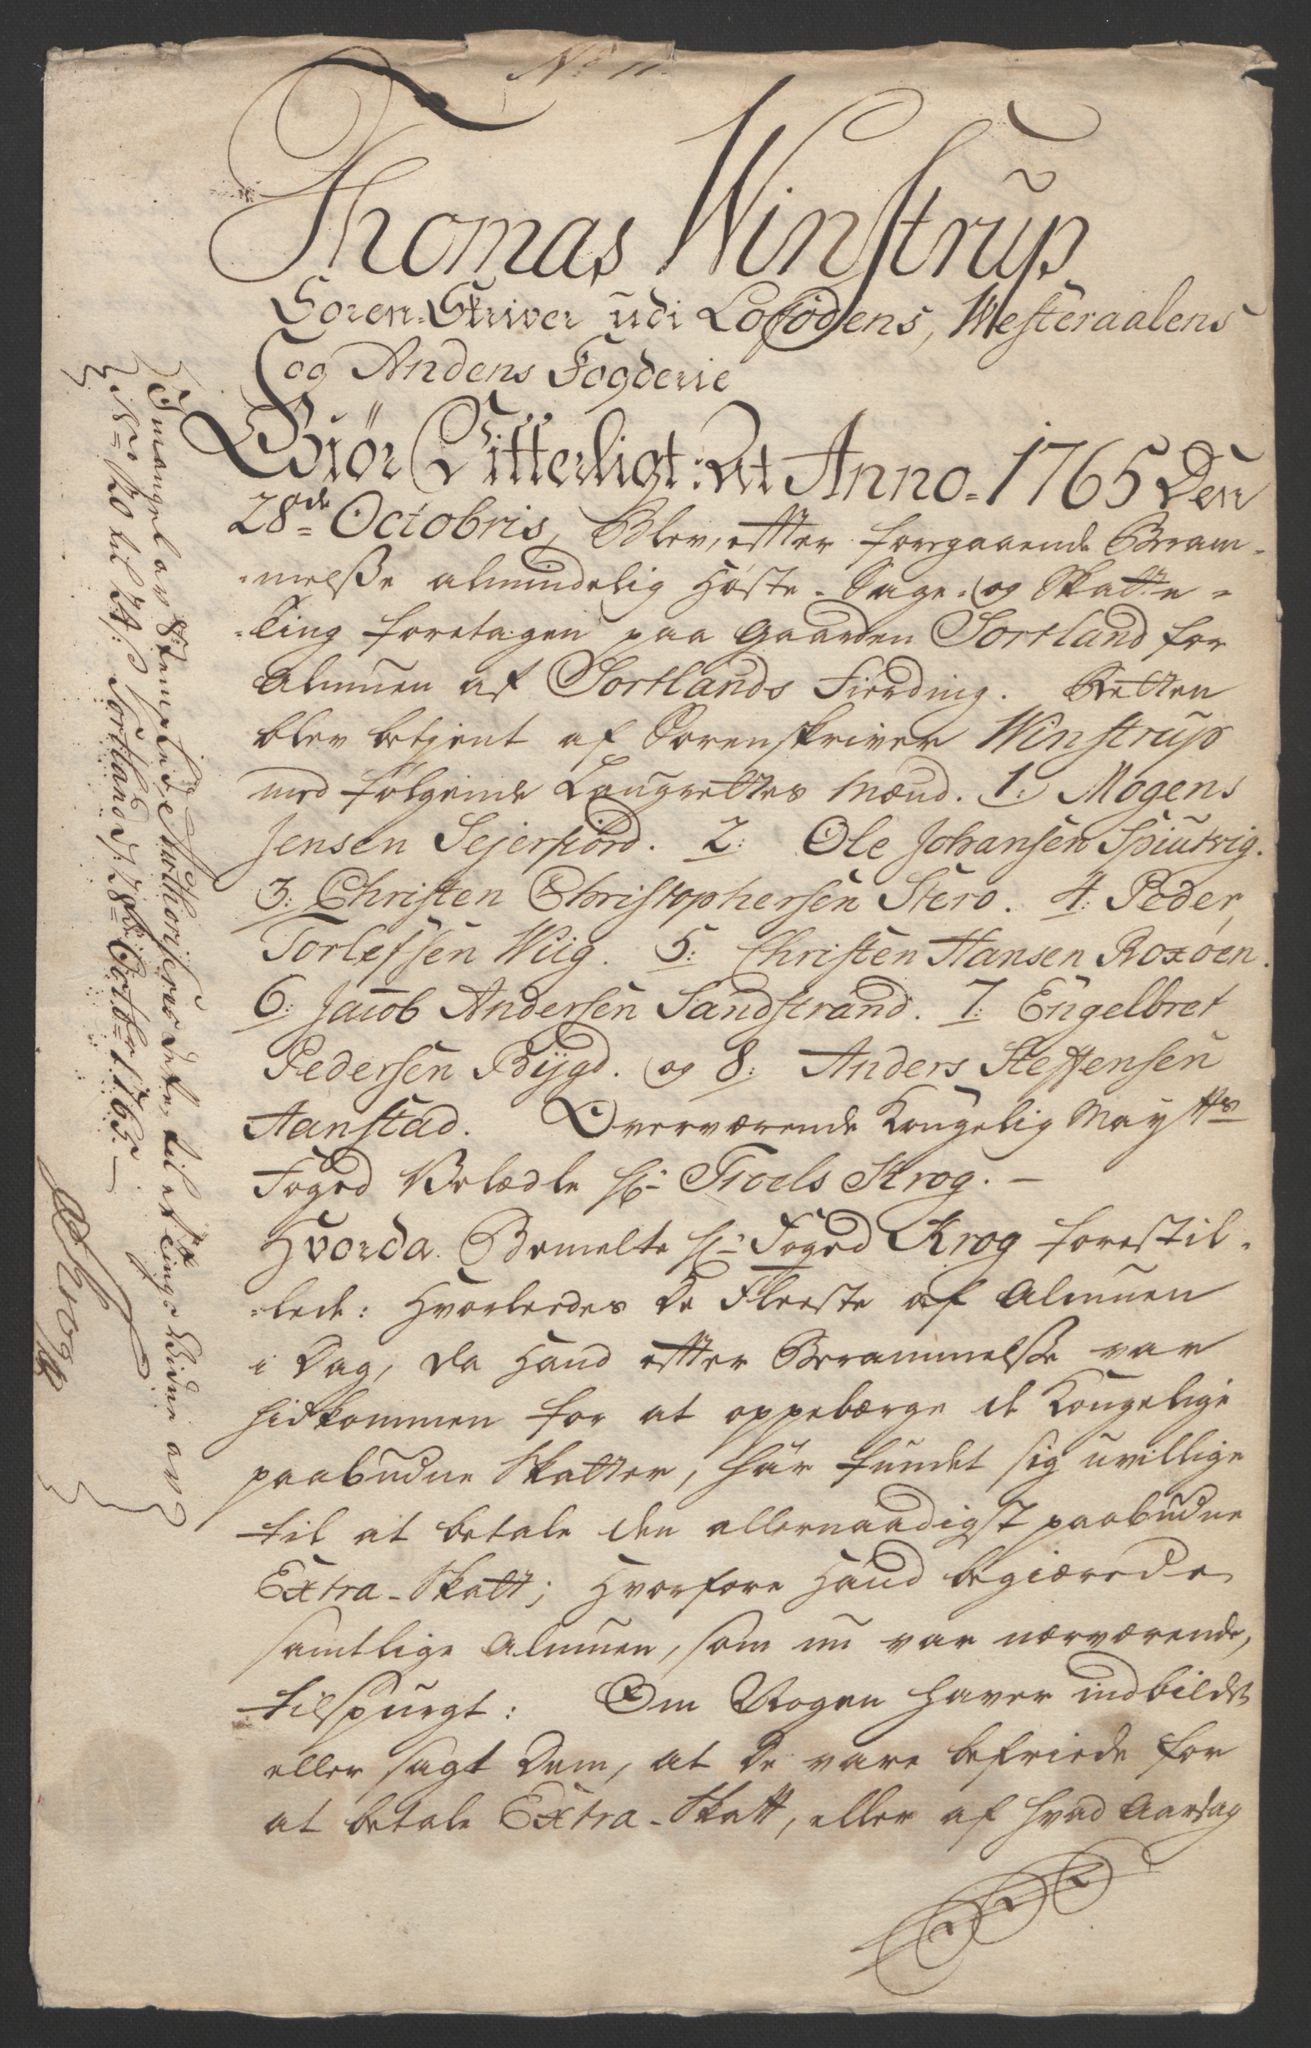 No 11.
Thomas Winstrup
Soren-Skriver udi Lofodens, Westeraalens
og Andens Fogderie
Giör Vitterligt: At Anno 1765 Den
28de Octobris, Blev, efter foregaaende Beram-
melsße almindelig Høste- Sage- og Skatte-
Ting foretagen paa Gaarden Sortland for
Almuen af Sortlands Fierding. Retten
blev betjent af Sorenskriver Winstrup
med følgende Laugrettes Mænd. 1: Mogens
Jensen Sejersfiord. 2: Ole Johansen Spiutvig.
3: Christen Christophersen Stero. 4: Peder
Torlefssen Wiig. 5: Christen Hansen Roxøen.
6: Jacob Andersen Sandstrand. 7: Engelbret
Pedersen Bÿgd. og 8: Anders Steffensen
Aanstad. Overværende Kongelig Mayts
Foged Velædle Hr Troels Krog.-
Hvorda Bemelte Hr Foged Krog forestil-
lede: Hvorledes De Fleeste af Almuen
i Dag, da Hand efter Berammelsße var
hidkommen for at oppebærge de Kongelige
paabudne Skatter, har fundet sig uvillige
til at betale den allernaadigst paabudne
Extra-Skatt; Hvorfore Hand begiærede
samtlige Almuen, som nu var nærværende,
tilspurgt: Om Nogen haver indbildt
eller sagt Dem, at De vare befriede for
at betale Extra-Skatt, eller af hvad Aarsag
I mangel av Stemplet Authoriseres dette til et Tings Vidne av
No 20 til 24 s Sortland d: 28de Octbr 1765.-
Krog